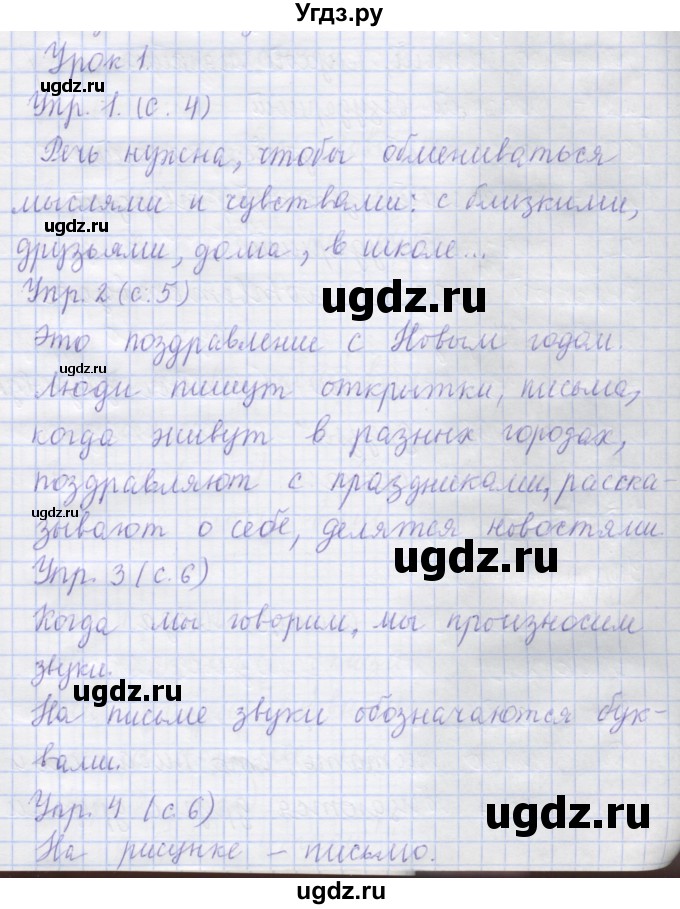 Угдз.ру
Урок 1.
ugdz.ru
Упр. 1. (с. 4)
Речь нужна, чтобы обмениваться
мыслями и чувствами: с близкими,
ugdz.ru
друзьями, дома, в школе...
Упр. 2 (с. 5)
ugdz.ru
Это поздравление с Новым годом.
ugdz.ru
Люди пишут открытки, письма,
когда живут в разных городах,
поздравляют с праздниками, расска-
ugdz.ru
зывают о себе, делятся новостями.
ugdz.ru
Упр. 3 (с. 6)
Когда мы говорим, мы произносим
звуки.
ugdz.ru
На письме звуки обозначаются бук-
вами.
Упр. 4 (с. 6)
ugdz.ru
На рисунке - письмо.
ugdz.ru